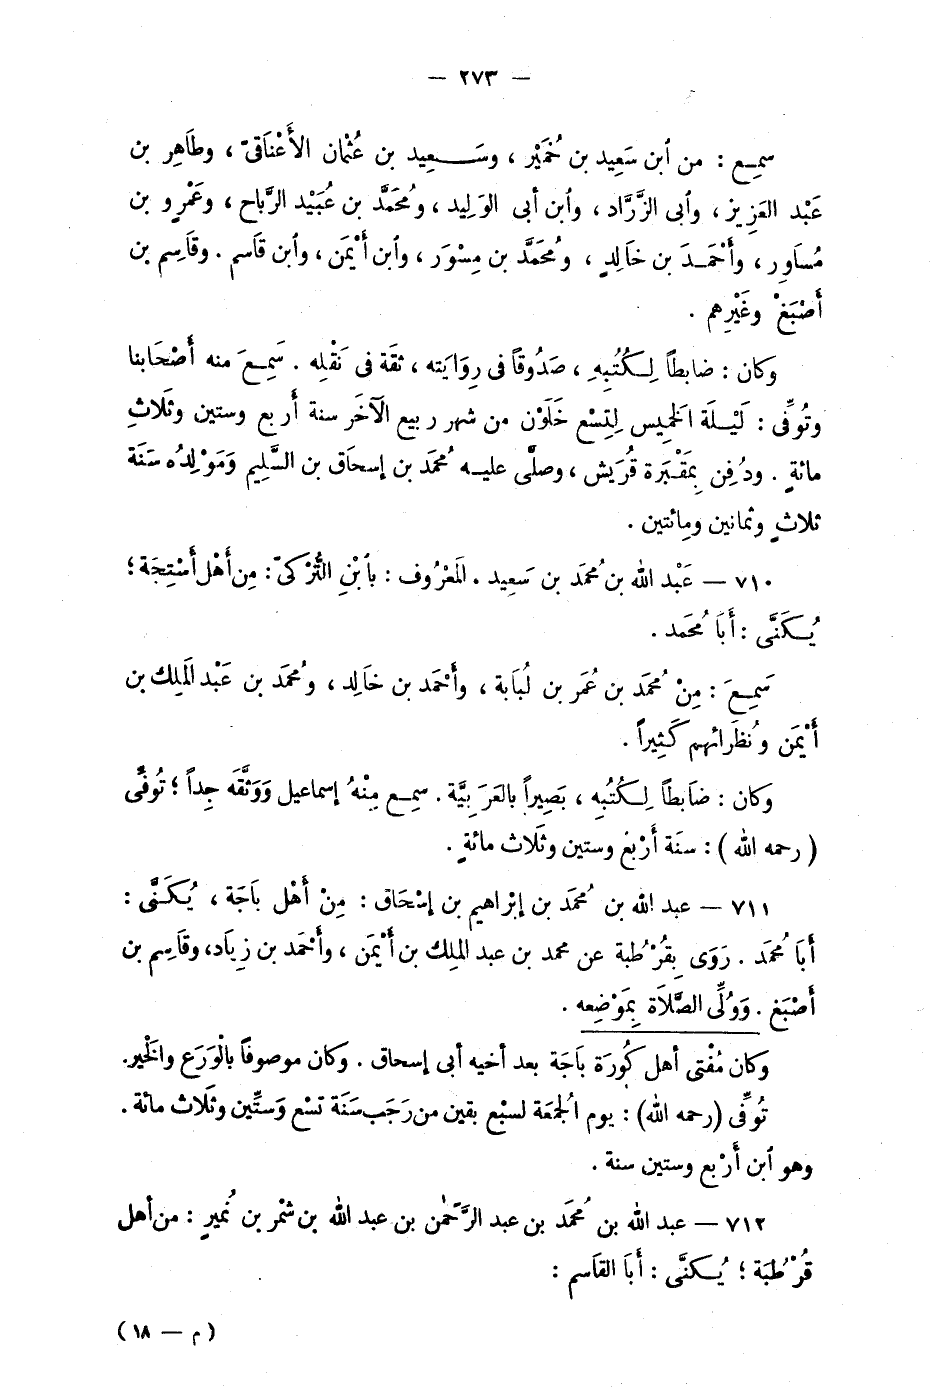 — ٢٧٣ —
سمِع : من ٱبن سَعِيد بن خُمَيْر ، وسَعِيد بن عُثْمان الأَعْنَاقىّ ، وطَاهِر بن
عَبْد العَزِيز ، وٱبى الزَّرَّاد ، وٱبن أبى الوَلِيد ، ومُحَمَّد بن عُبَيْد الرَّباح ، وعَمْرو بن
مُسَاوِر ، وأَحْمَدَ بن خَالِدٍ ، ومُحَمَّد بن مِسْوَر ، وٱبن أَيْمَن ، وٱبن قَاسم . وقَاسِم بن
أَصْبَغْ وغَيْرِهم .
وكان : ضابطاً لِكُتُبِهِ ، صَدُوقاً فى رِوَايَته ، ثقَة فى نَقْلِه . سَمِعَ منه أَصْحَابنا
وتُوفِّى : لَيْلَة الخَمِيس لِتِسْع خَلَوْن من شهر ربيع الآخَر سنة أَربع وستين وثَلَاثِ
مائةٍ . ودُفِن بِمَقْبَرة قُرَيش ، وصلَّى عليه مُحمَد بن إسحَاق بن السَّلِيم وَمَوْلِدُه سَنَة
ثلاثٍ وثمانين ومِائتين .
٧١٠ — عَبْد الله بن مُحمَد بن سَعِيد . المَعْرُوف : بٱبْنِ التُّرْكىّ : مِن أَهْل أَسْتِجَة ؛
يُكَنَّى : أَبَا مُحمَد .
سَمِعَ : مِنْ مُحمَد بن عُمَر بن لُبَابة ، وأَحْمَد بن خَالِد ، ومُحمَد بن عَبْد المَلِك بن
أَيْمَن ونُظَرائهم كَثِيراً .
وكان : ضَابطاً لِكُتُبِه ، بَصِيراً بالعَرَبِيَّة . سمِع مِنْهُ إسماعيل وَوَثَّقَه جِداً ؛ تُوفِّى
( رحمه الله ) : سنَة أَرْبَع وستين وثَلَاث مائةٍ .
٧١١ — عبد الله بن مُحمَد بن إبْراهيم بن إسْحَاق : مِنْ أَهْل بَاجَة ، يُكَنَّى :
أَبَا مُحمَد . رَوَى بِقُرْطُبة عن محمد بن عبد الملِك بن أَيْمَن ، وأَحْمَد بن زِيَاد ، وقَاسِم بن
أَصْبَغ . وَوُلِّى الصَّلَاَة بِمَوْضِعه .
وكان مُفْتى أهل كُورَة بَاجَة بعد أخيه أبى إسحاق . وكان موصوفاً بالْوَرَع والْخَير.
تُوفِّى (رحمه الله) : يوم الجُمَعَة لسبْع بقين من رَجَب سَنَة تسْع وَستِّين وثَلَاث مائة .
وهو ٱبن أَرْبع وستين سنة .
٧١٢ — عبد الله بن مُحمَد بن عبد الرَّحْمٰن بن عبد الله بن شمْر بن نُمَيرٍ : من أهل
قُرْطُبَة ؛ يُكنَّى : أَبَا القَاسم :
( م — ١٨ )